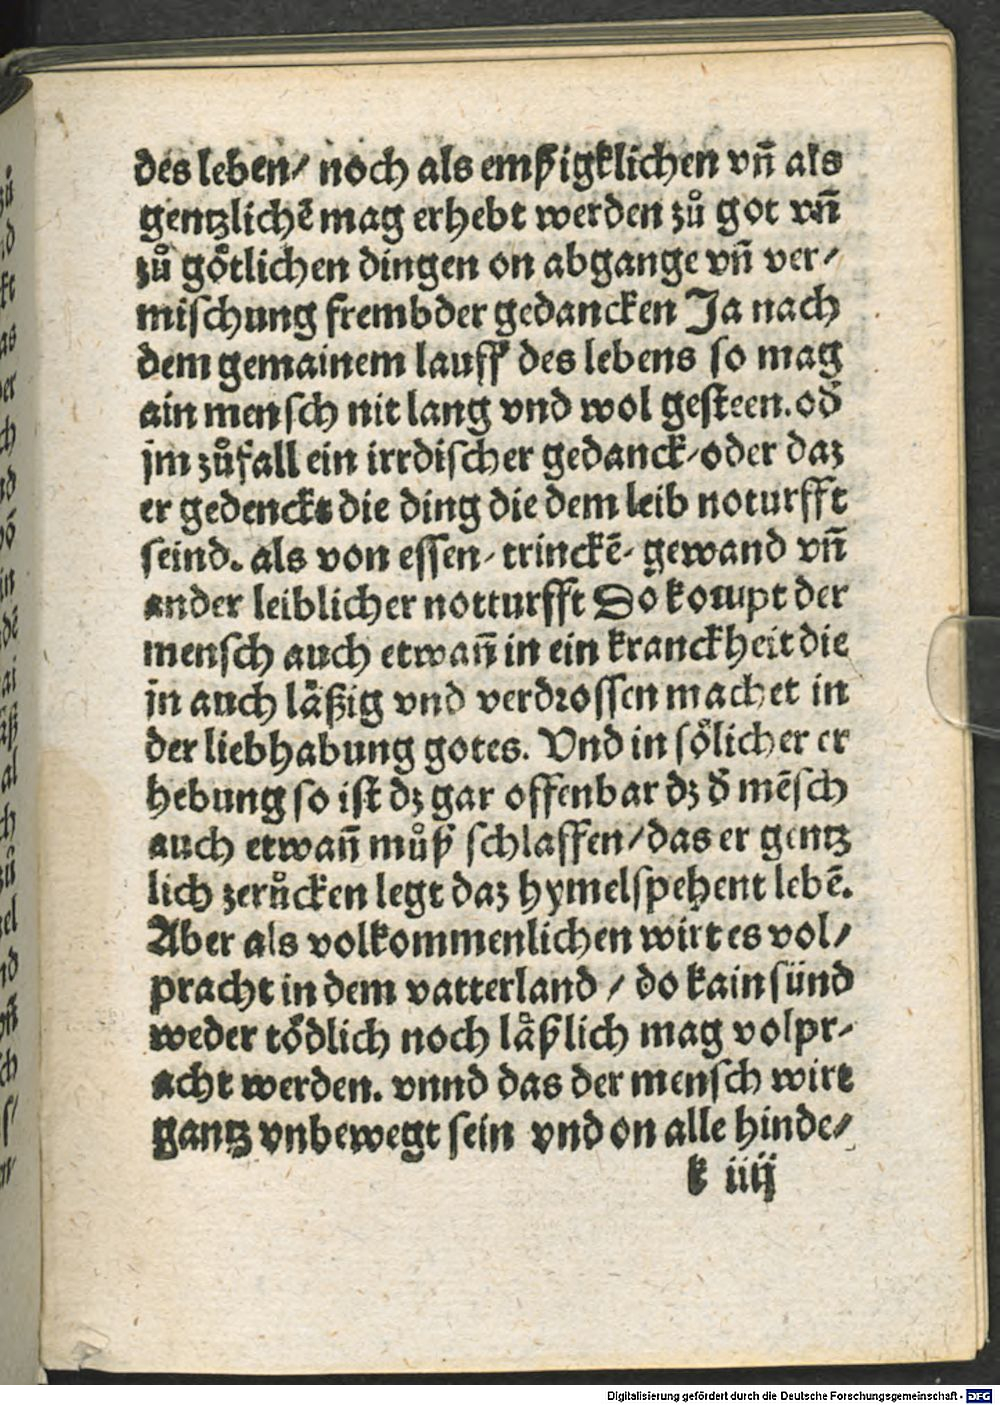 des leben/ noch als emßigklichen vn̄ als
gentzlichē mag erhebt werden zů got vn̄
zů gͤotlichen dingen on abgange vn̄ ver/
mischung frembder gedancken Ja nach
dem gemainem lauff des lebens so mag
ain mensch nit lang vnd wol gesteen. od̄
jm zůfall ein irrdischer gedanck/ oder daz
er gedenckt die ding die dem leib noturfft
seind. als von essen/ trinckē/ gewand vn̄
ander leiblicher notturfft So kompt der
mensch auch etwan̄ in ein kranckheit die
jn auch lͤaßig vnd verdrossen machet in
der liebhabung gotes. Vnd in sͤolicher er
hebung so ist dz gar offenbar dz d̄ mēsch
auch etwan̄ můß schlaffen/ das er gentz
lich zerůcken legt daz hymelspehent lebē.
Aber als volkommenlichen wirt es vol/
pracht in dem vatterland / do kain sünd
weder tͤodlich noch lͤaßlich mag volpr/
acht werden. vnnd das der mensch wirt
gantz vnbewegt sein vnd on alle hinde/
k iiij
Digitalisierung gefördert durch die Deutsche Forschungsgemeinschaft - DFG